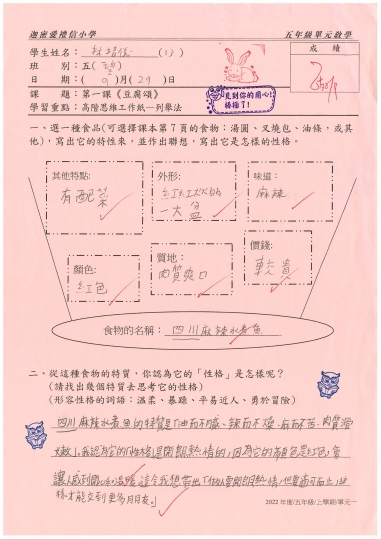 迦密愛禮信小學
五年級單元教學
學生姓名：林 (13)
成績
班 別：五( )
日 期：(9)月(29)日
見到你的用心！
棒極了！
課 題：第一課《豆腐頌》
學習重點：高階思維工作紙—列舉法
一、選一種食品(可選擇課本第7頁的食物：湯圓、叉燒包、油條，或其
他)，寫出它的特性來，並作出聯想，寫出它是怎樣的性格。
其他特點:
有配菜
外形:
紅紅火火的
一大盆
味道:
麻辣
顏色:
紅色
質地:
肉質爽口
價錢:
較貴
食物的名稱：四川麻辣水煮魚
二、從這種食物的特質，你認為它的「性格」是怎樣呢？
(請找出幾個特質去思考它的性格)
(形容性格的詞語：溫柔、暴躁、平易近人、勇於冒險)
四川麻辣水煮魚的特質是「油而不膩、辣而不燥、麻而不苦、肉質滑
嫩」。我認為它的「性格」是開朗熱情的，因為它的顏色是紅色，會
讓人感到 溫暖。這令我想帶出「做人要開朗熱情，但要適可而止，這
樣才能交到更多朋友。」
2022年度/五年級/上學期/單元一